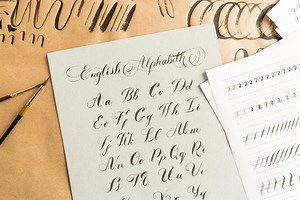 English Alphabet
Aa Bb Cc Dd
Ee Ff Gg Hh
Ii Jj Kk
Ll Mm
Nn Oo Pp Qq Rr
Ss Tt Uu Vv
Yy